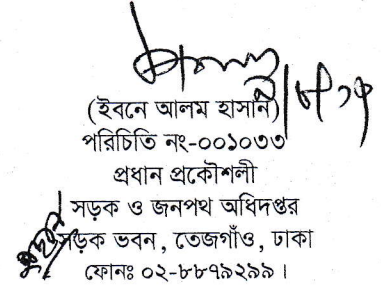 (ইবনে আলম হাসান)
পরিচিতি নং-০০১০৩৩
প্রধান প্রকৌশলী
সড়ক ও জনপথ অধিদপ্তর
সড়ক ভবন, তেজগাঁও, ঢাকা
ফোনঃ ০২-৮৮৭৯২৯৯।